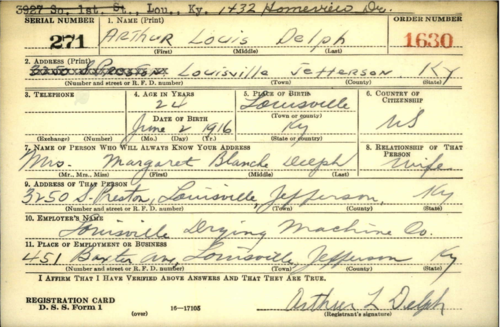 3927 So. 1st. St., Lou., Ky. 1432 Homeview Dr.
SERIAL NUMBER 1. NAME (Print) ORDER NUMBER
271 ARTHUR LOUIS DELPH 1630
(First) (Middle) (Last)
2. ADDRESS (Print)
3250 S. PRESTON LOUISVILLE JEFFERSON KY
(Number and street or R. F. D. number) (Town) (County) (State)
3. TELEPHONE 4. AGE IN YEARS 5. PLACE OF BIRTH 6. COUNTRY OF CITIZENSHIP
24 Louisville
DATE OF BIRTH (Town or county)
June 2 1916 Ky US
(Exchange) (Number) (Mo.) (Day) (Yr.) (State or country)
7. NAME OF PERSON WHO WILL ALWAYS KNOW YOUR ADDRESS 8. RELATIONSHIP OF THAT PERSON
Mrs. Margaret Blanche Delph Wife
(Mr., Mrs., Miss) (First) (Middle) (Last)
9. ADDRESS OF THAT PERSON
3250 S. Preston, Louisville, Jefferson, Ky
(Number and street or R. F. D. number) (Town) (County) (State)
10. EMPLOYER'S NAME
Louisville Drying Machine Co.
11. PLACE OF EMPLOYMENT OR BUSINESS
451 Baxter Ave, Louisville, Jefferson Ky
(Number and street or R. F. D. number) (Town) (County) (State)
I AFFIRM THAT I HAVE VERIFIED ABOVE ANSWERS AND THAT THEY ARE TRUE.
REGISTRATION CARD Arthur L Delph
D. S. S. Form 1 (over) 16—17105 (Registrant's signature)